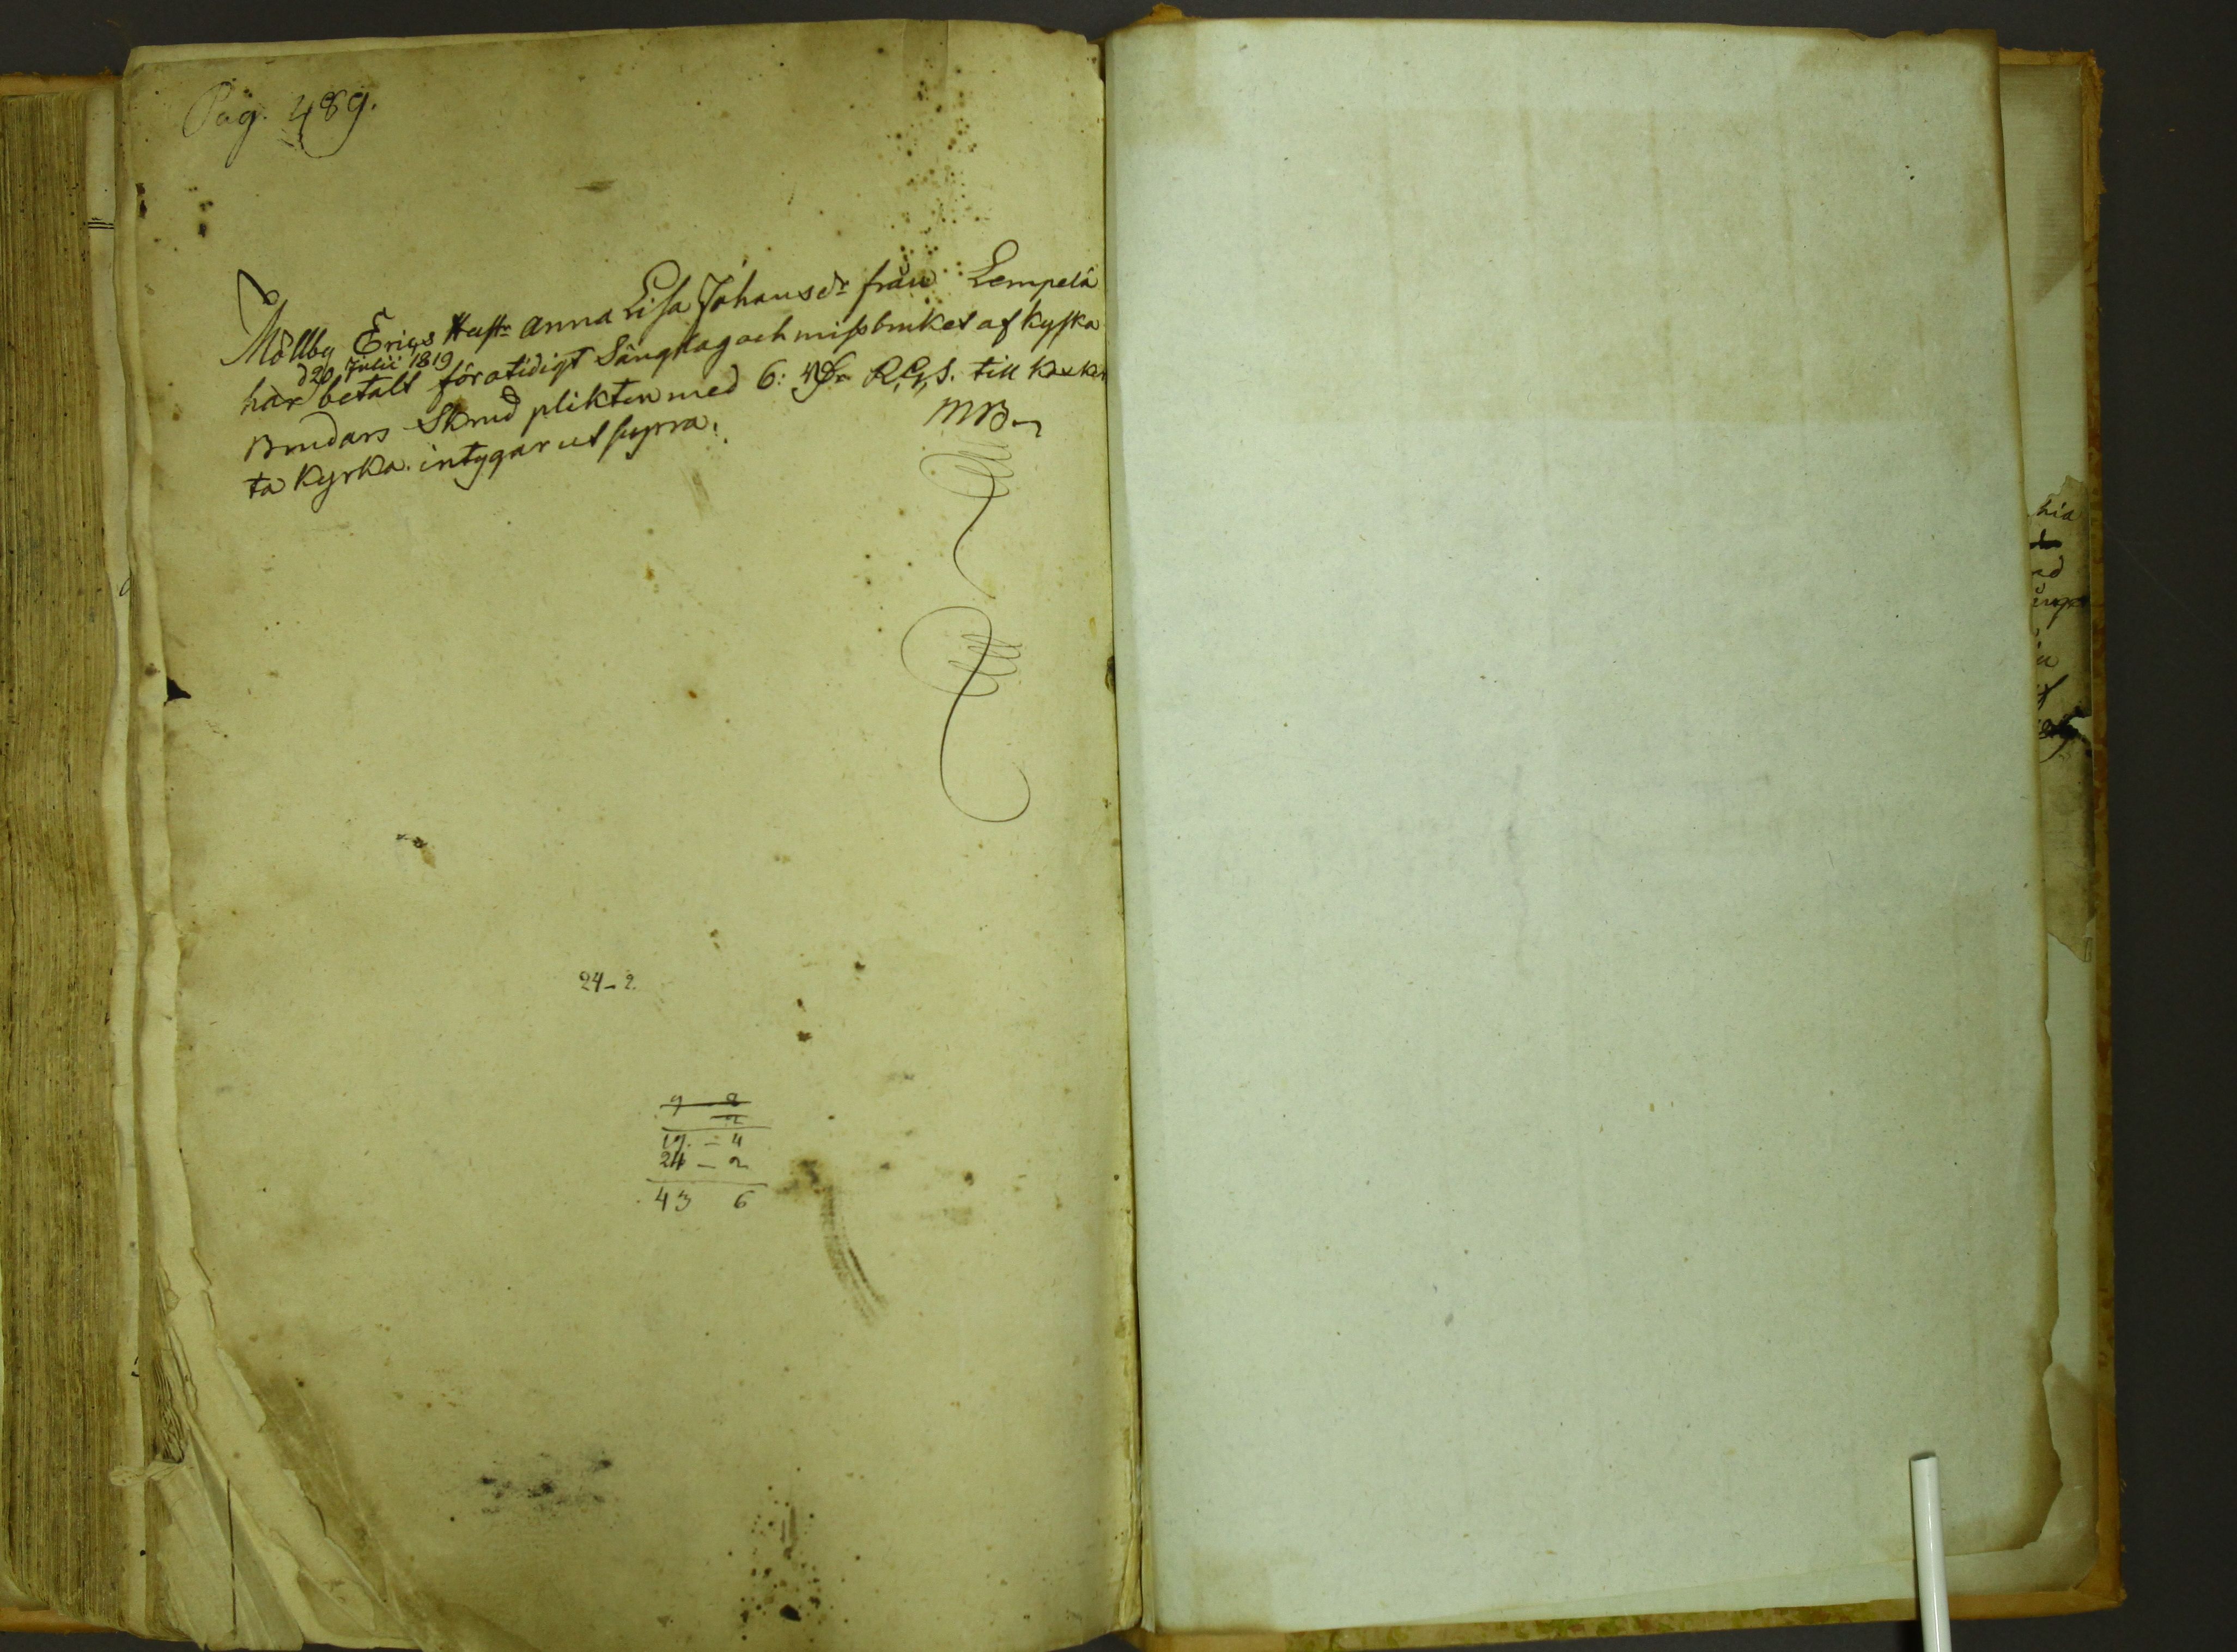 Pag. 489.
Möllby Erics Hustr. Anna Lisa Johansdr från Lempelä
d 20 Julii 1819
har betalt för otidigt Sänglag och missbruket af kyska
Brudars Skrud plikten med 6: R.G.S. till
ta Kyrka. intygar ut supra.
MB
24-2.
9 2
2
19. - 4
24 - 2
43 6
hia